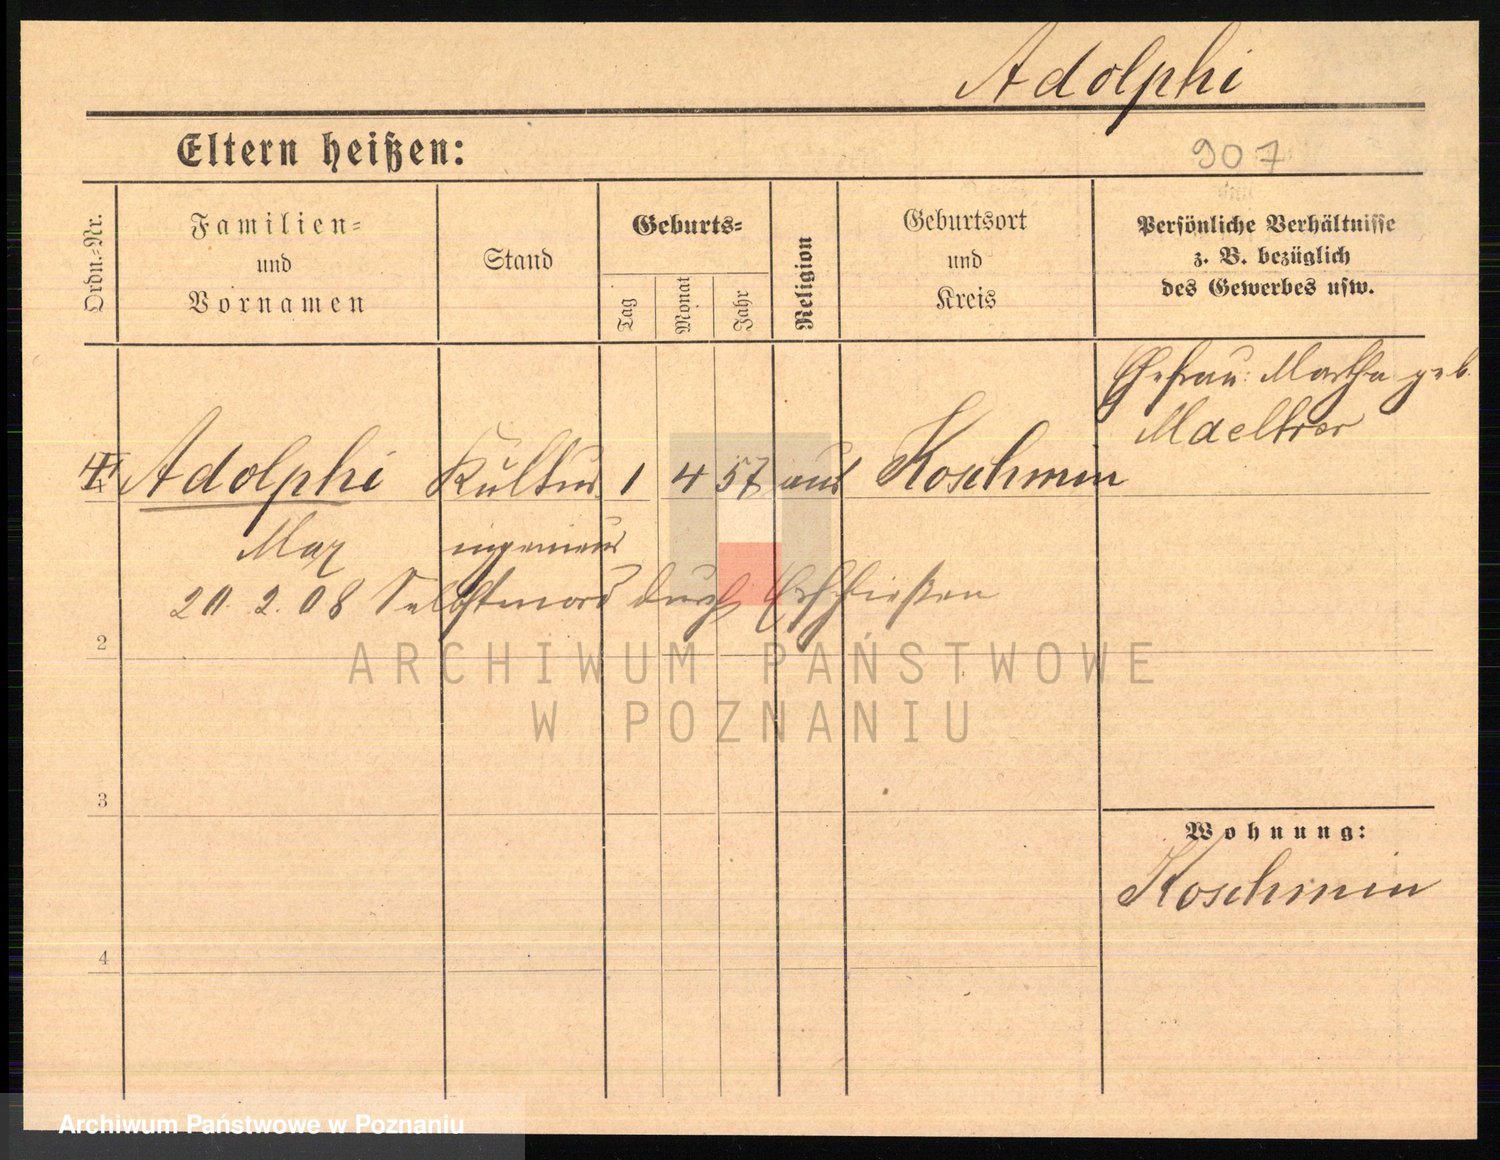 Adolphi
Eltern heißen:
907
Ordn.-Nr.
Familien-
und
Vornamen
Stand
Geburts-
Tag
Monat
Jahr
Religion
Geburtsort
und
Kreis
Persönliche Verhältnisse
z. B. bezüglich
des Gewerbes usw.
Ehefrau: Martha geb.
Adolphi Kultur 1 4 57 aus Koschmin
Max ingenieur
20. 2. 08 Selbstmord durch Erschießen
2
3
4
Wohnung:
Koschmin
ARCHIWUM PAŃSTWOWE
W POZNANIU
Archiwum Państwowe w Poznaniu